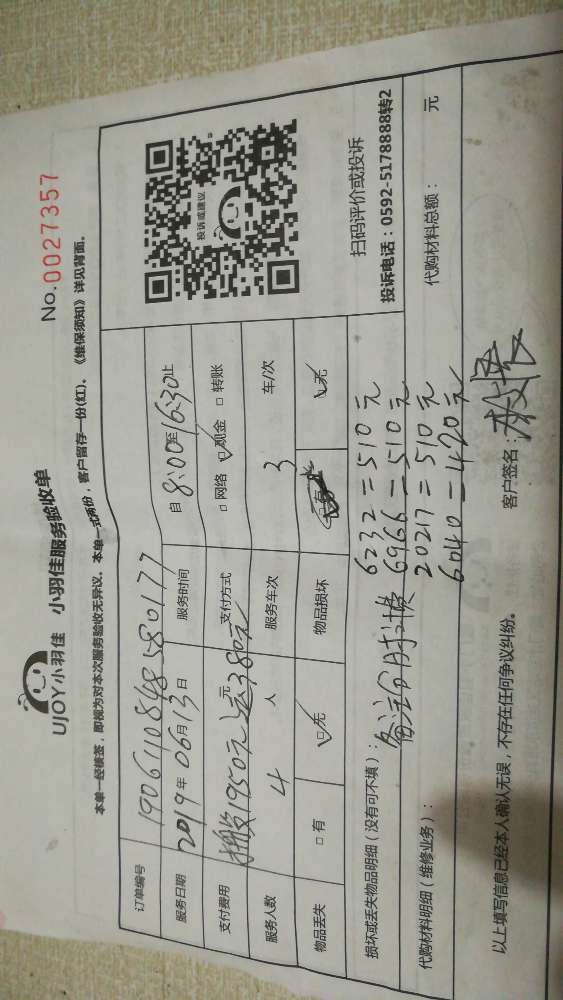 UJOY小羽佳 小羽佳服务验收单
No.0027357
本单一经核签，即视为对本次服务验收无异议。本单一式两份，客户留存一份(红)。《维保须知》详见背面。
订单编号 1906110848580177
服务日期 2019年06月13日 服务时间 自8:00至16:30止
支付费用 1950元 380元 元 支付方式 □网络 □现金 □转账
服务人数 4 人 服务车次 3 车/次
物品丢失 □有 □无 物品损坏 □有 □无
投诉或建议
扫码评价或投诉
投诉电话：0592-5178888转2
损坏或丢失物品明细（没有可不填）：
备注合时计费
6232=510元
6966=510元
20217=510元
6040=420元
代购材料明细（维修业务）：
代购材料总额： 元
以上填写信息已经本人确认无误，不存在任何争议纠纷。
客户签名：